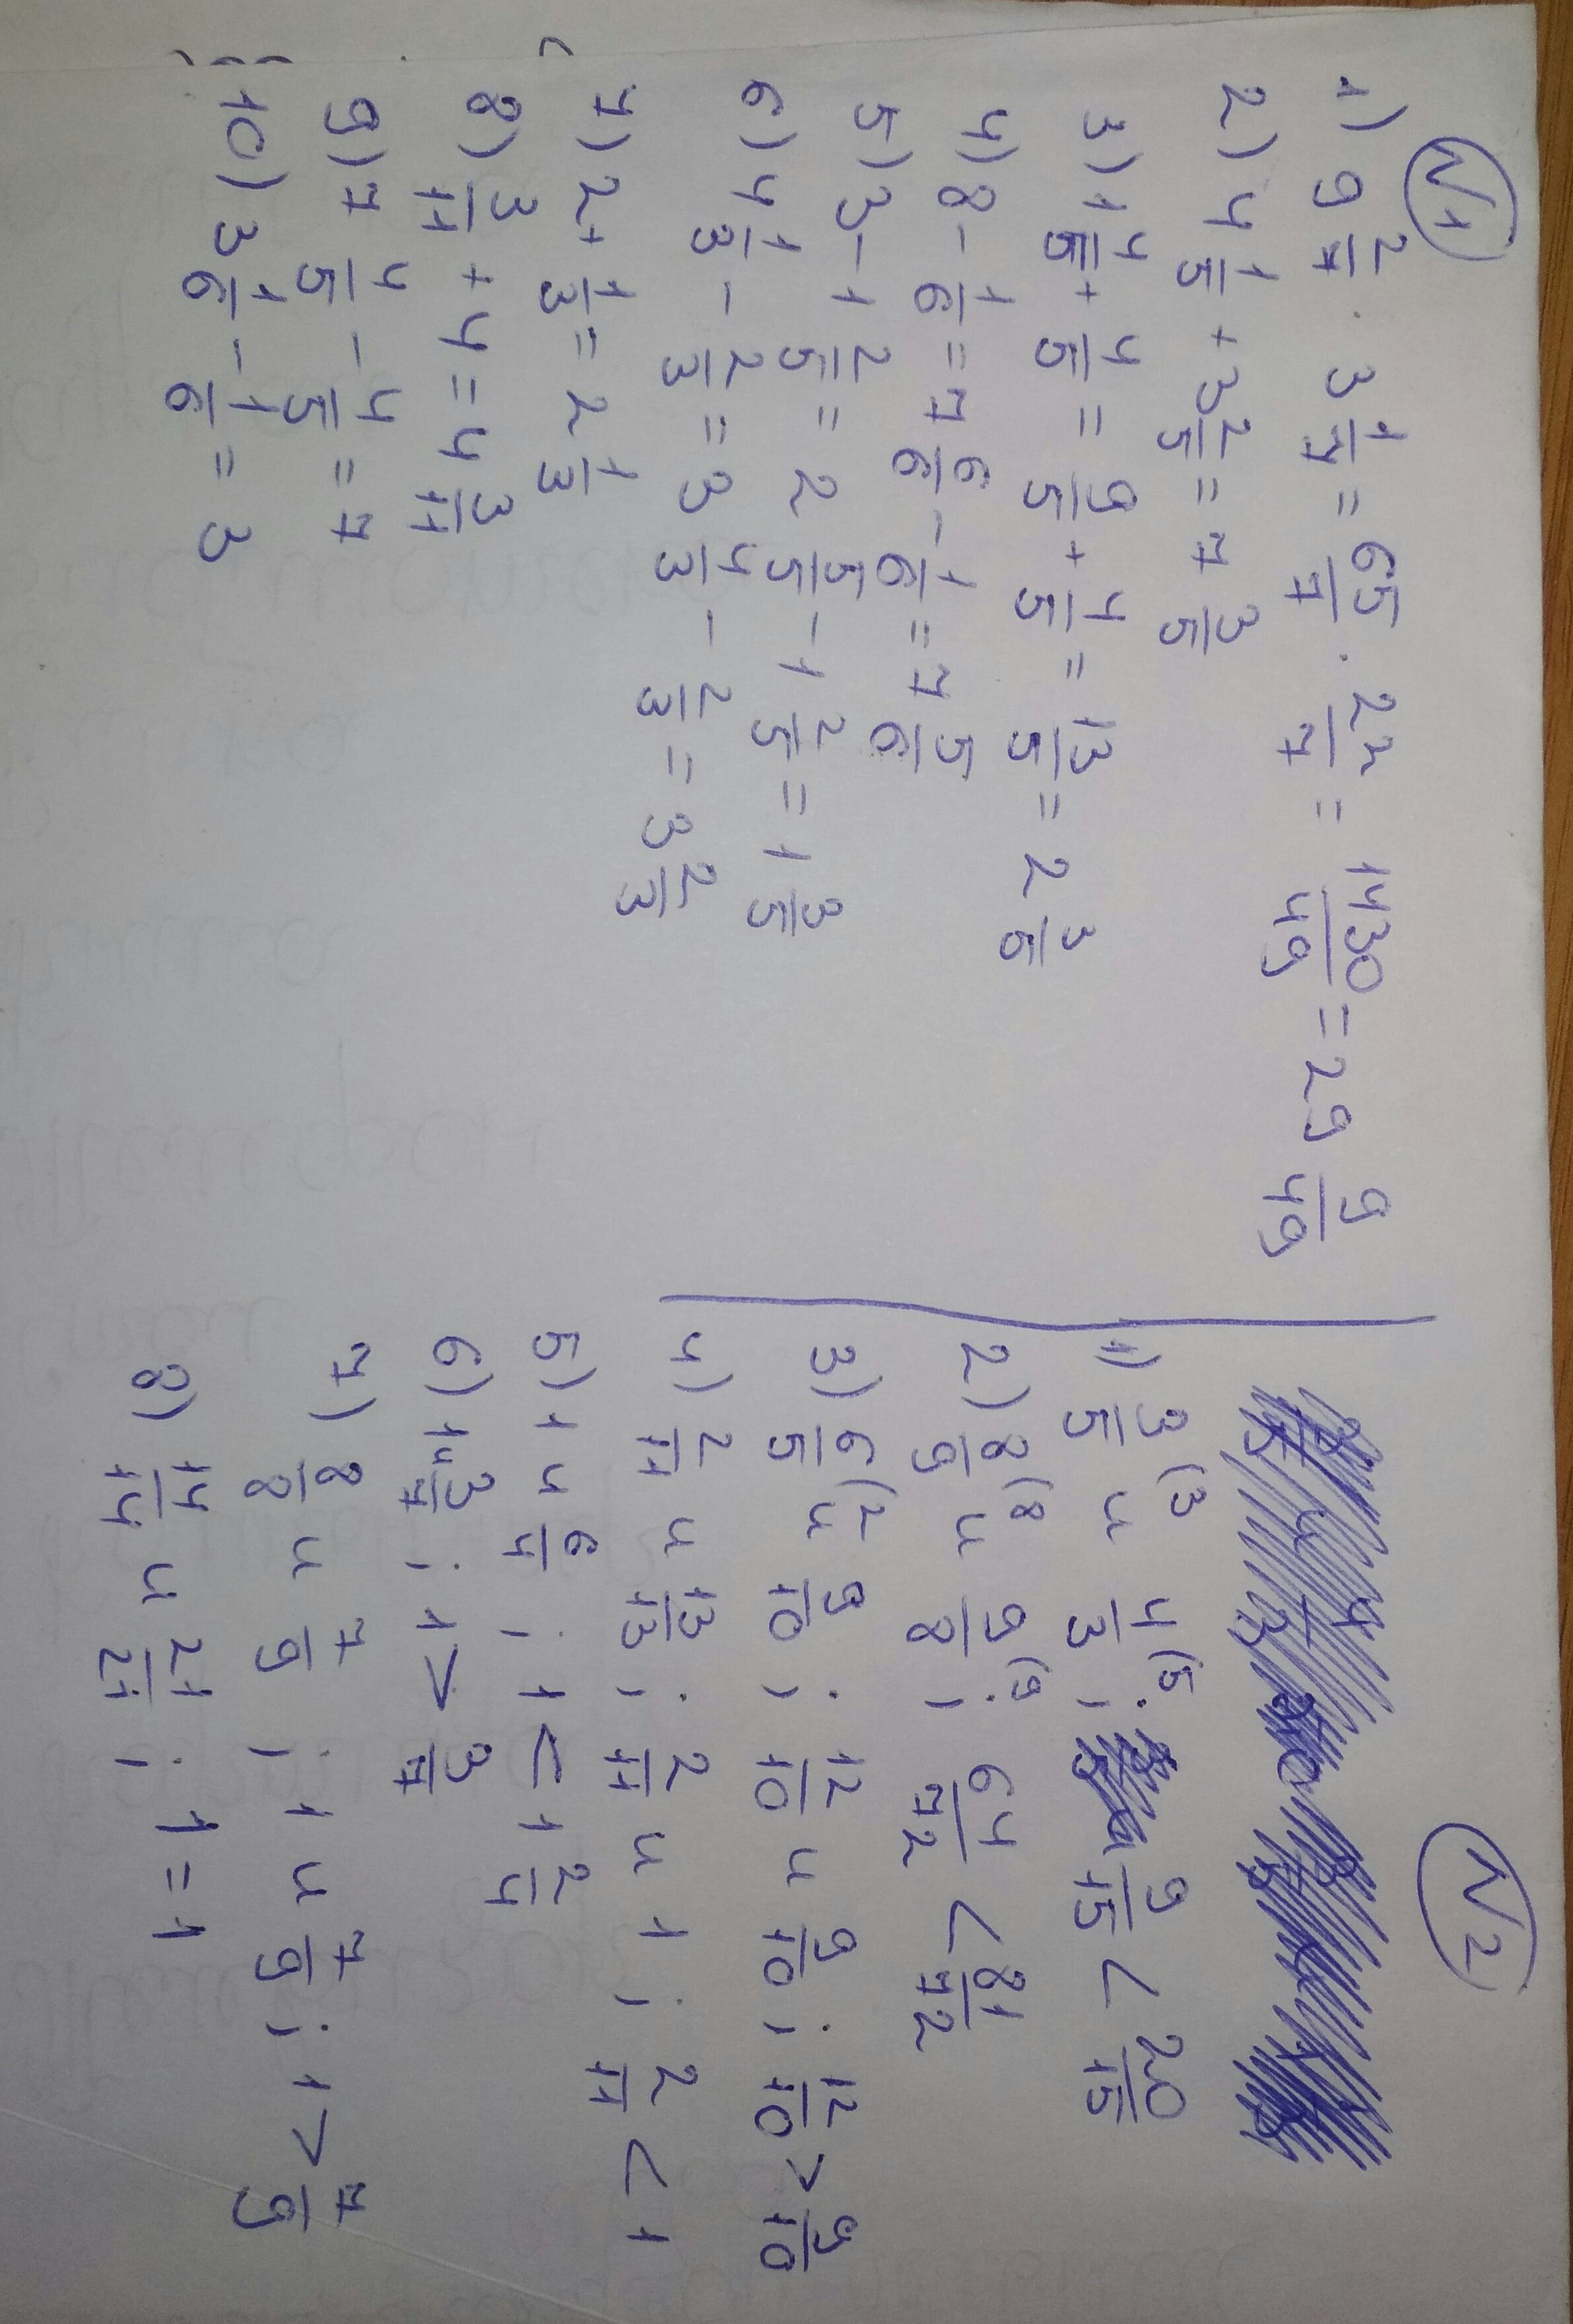 N1
1) 9 2/7 · 3 1/7 = 65/7 · 22/7 = 1430/49 = 29 9/49
2) 4 1/5 + 3 2/5 = 7 3/5
3) 1 4/5 + 4/5 = 9/5 + 4/5 = 13/5 = 2 3/5
4) 8 - 1/6 = 7 6/6 - 1/6 = 7 5/6
5) 3 - 1 2/5 = 2 5/5 - 1 2/5 = 1 3/5
6) 4 1/3 - 2/3 = 3 4/3 - 2/3 = 3 2/3
7) 2 + 1/3 = 2 1/3
8) 3/11 + 4 = 4 3/11
9) 7 4/5 - 4/5 = 7
10) 3 1/6 - 1/6 = 3
N2
1) 3/5 (3 и 4/3 (5; 9/15 < 20/15
2) 8/9 (8 и 9/8 (9; 64/72 < 81/72
3) 6/5 (2 и 9/10; 12/10 и 9/10; 12/10 > 9/10
4) 2/11 и 13/13; 2/11 и 1; 2/11 < 1
5) 1 и 6/4; 1 < 1 2/4
6) 1 и 3/7; 1 > 3/7
7) 8/8 и 7/9; 1 и 7/9; 1 > 7/9
8) 14/14 и 21/21; 1 = 1